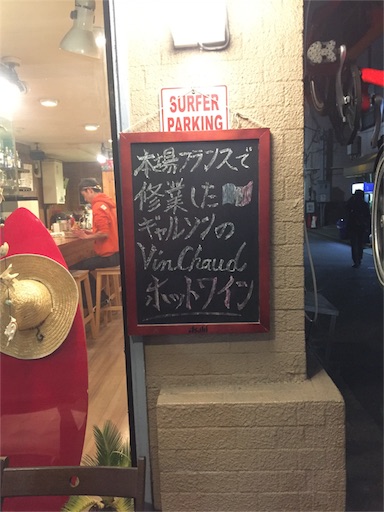 SURFER
PARKING
本場フランスで
修業した
ギャルソンの
Vin Chaud
ホットワイン
Asahi